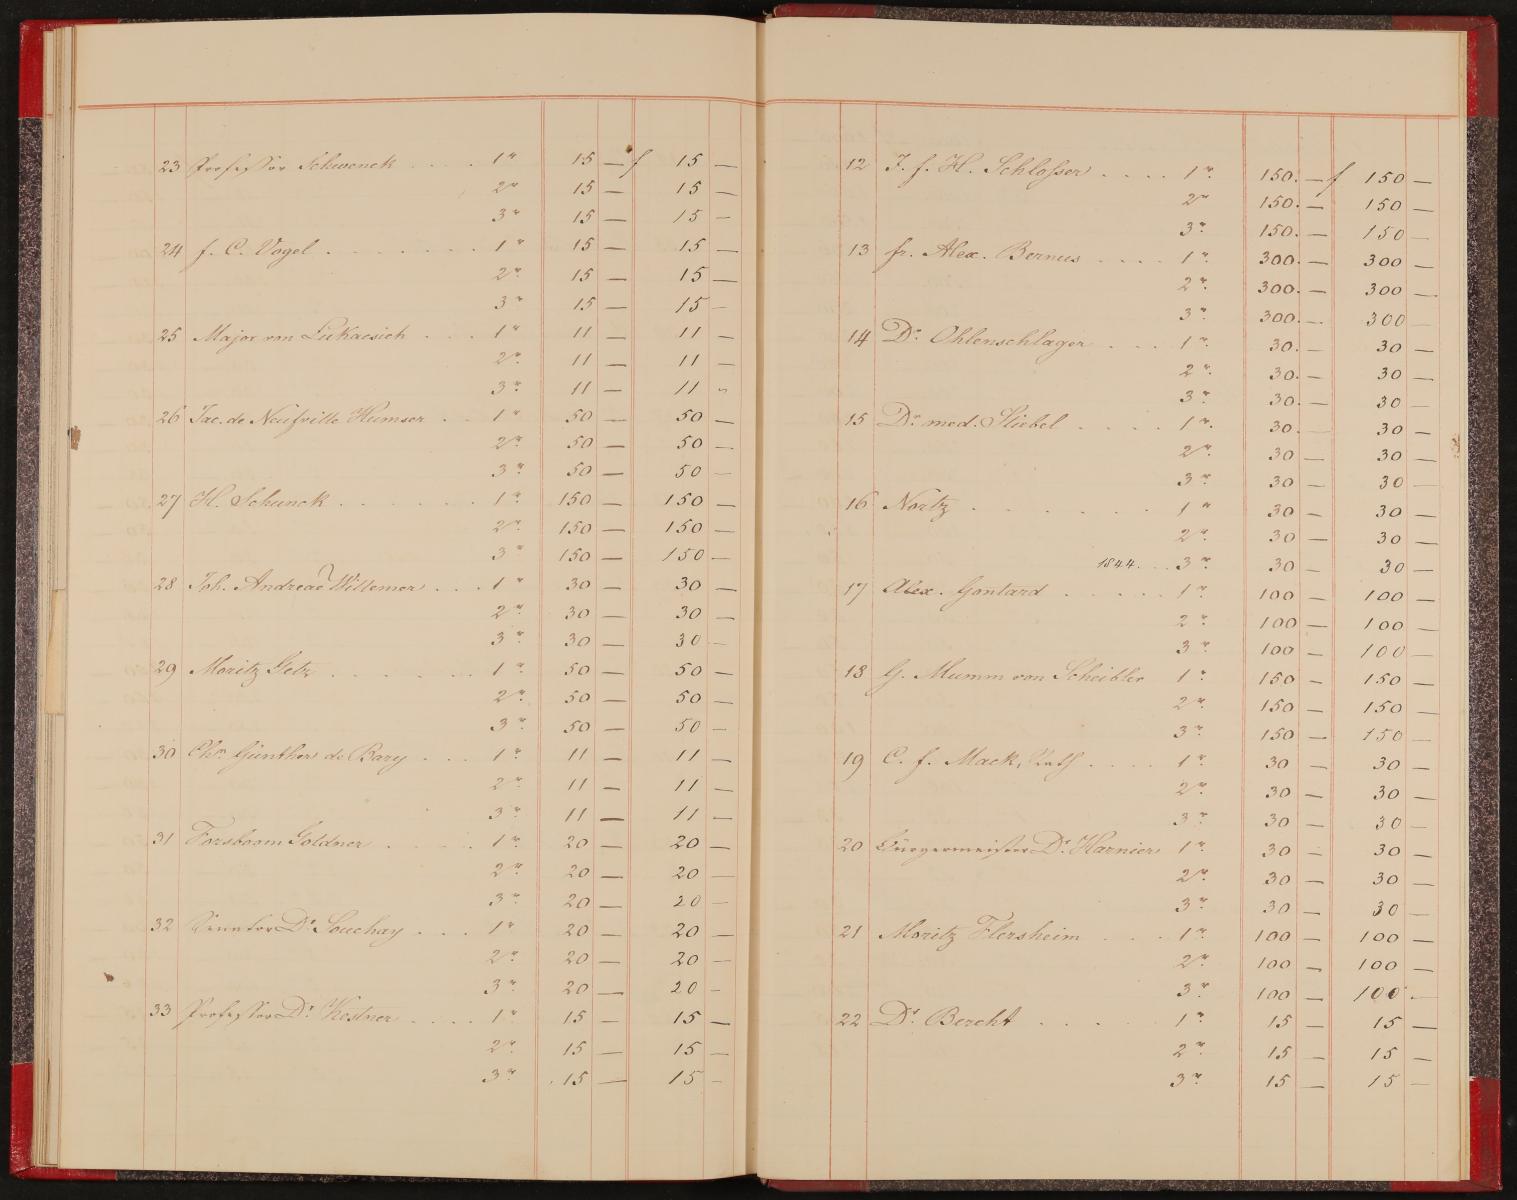 23 Professor Schwenck . . . . 1r 15 — f 15 —
2r 15 — 15 —
3r 15 — 15 —
24 f. C. Vogel . . . . . . . 1r 15 — 15 —
2r. 15 — 15 —
3r 15 — 15 —
25 Major von Lukacsich . . . 1r 11 — 11 —
2r. 11 — 11 —
3r. 11 — 11 „
26 Jac. de Neufville Humser . . 1r 50 — 50 —
2r. 50 — 50 —
3r 50 — 50 —
27 H. Schunck . . . . . . . 1r 150 — 150 —
2r. 150 — 150 —
3r 150 — 150 —
28 Joh. Andreae Willemer . . . 1r 30 — 30 —
2r. 30 — 30 —
3r. 30 — 30 —
29 Moritz Getz . . . . . . . 1r. 50 — 50 —
2r. 50 — 50 —
3r. 50 — 50 —
30 Chn Günther de Bary . . . 1r. 11 — 11 —
2r. 11 — 11 —
3r. 11 — 11 —
31 Forsboom Goldner . . . . 1r. 20 — 20 —
2r. 20 — 20 —
3r. 20 — 20 —
32 Senator Dr. Souchay . . . 1r 20 — 20 —
2r. 20 — 20 —
3r. 20 — 20 —
33 Professor Dr. Kestner . . . . 1r 15 — 15 —
2r. 15 — 15 —
3r. 15 — 15 —
12 J. f. H. Schlosser . . . . 1r. 150. — f 150 —
2r 150. — 150 —
3r. 150. — 150 —
13 fr. Alex. Bernus . . . . 1r. 300. — 300 —
2r. 300. — 300 —
3r. 300. — 300 —
14 Dr. Ohlenschlager . . . 1r. 30. — 30 —
2r. 30. — 30 —
3r. 30. — 30 —
15 Dr. med. Stiebel . . . . 1r. 30. — 30 —
2r. 30 — 30 —
3r. 30 — 30 —
16 Noritz . . . . . . . 1r 30 — 30 —
2r. 30 — 30 —
1844. . . 3r. 30 — 30 —
17 Alex. Gontard . . . . . 1r. 100 — 100 —
2r. 100 — 100 —
3r. 100 — 100 —
18 G. Mumm von Scheibler 1r. 150 — 150 —
2r. 150 — 150 —
3r. 150 — 150 —
19 C. f. Mack, Rath . . . . 1r. 30 — 30 —
2r. 30 — 30 —
3r. 30 — 30 —
20 Bürgermeister Dr. Harnier 1r. 30 — 30 —
2r. 30 — 30 —
3r. 30 — 30 —
21 Moritz Flersheim . . . 1r. 100 — 100 —
2r. 100 — 100 —
3r. 100 — 100 —
22 Dr. Bercht . . . . . 1r. 15 — 15 —
2r. 15 — 15 —
3r. 15 — 15 —